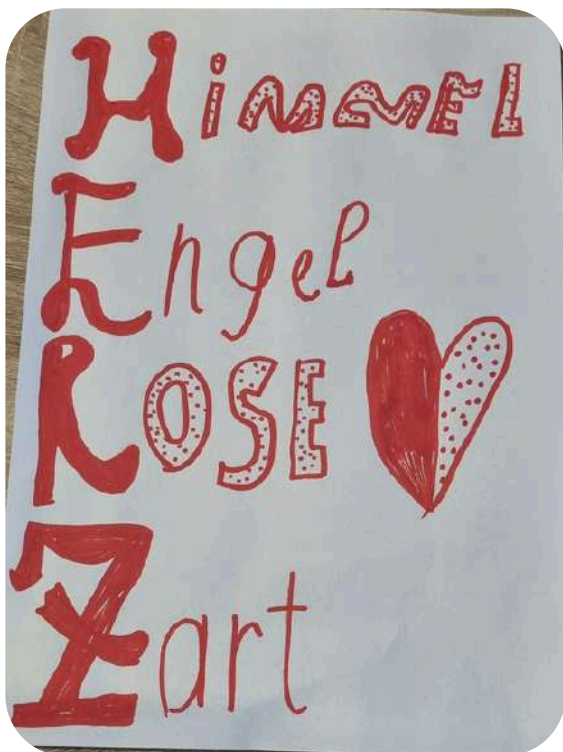 HiMMEL
Engel
ROSE
Zart